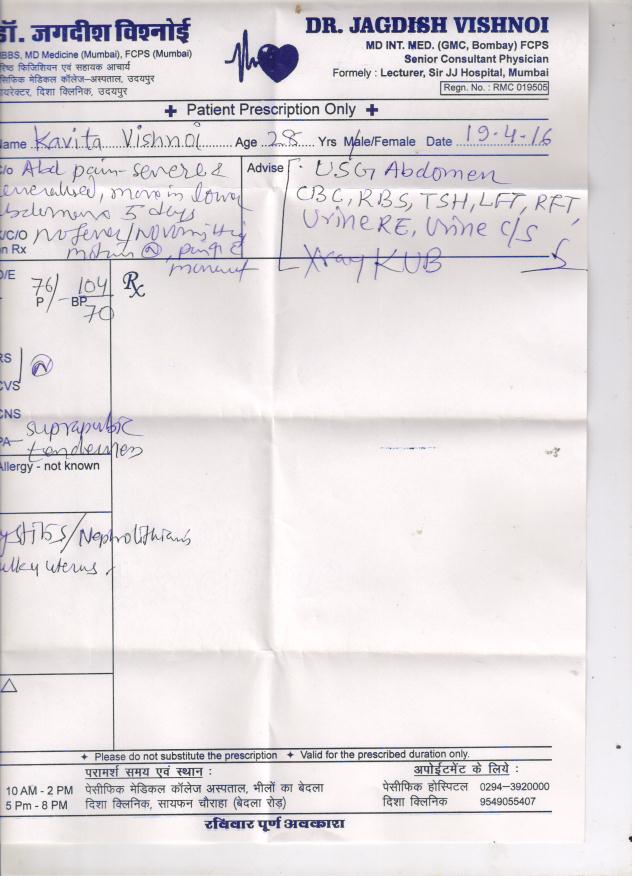 डॉ. जगदीश विश्नोई
BBS, MD Medicine (Mumbai), FCPS (Mumbai)
रिष्ठ फिजिशियन एवं सहायक आचार्य
सिफिक मेडिकल कॉलेज-अस्पताल, उदयपुर
ायरेक्टर, दिशा क्लिनिक, उदयपुर
DR. JAGDISH VISHNOI
MD INT. MED. (GMC, Bombay) FCPS
Senior Consultant Physician
Formely : Lecturer, Sir JJ Hospital, Mumbai
Regn. No. : RMC 019505
+ Patient Prescription Only +
Name Kavita Vishnoi Age 28 Yrs Male/Female Date 19-4-16
C/o Abd pain - severe &
generalised, more in lower
abdomen 5 days
K/C/O no fever/No vomiting
on Rx motion (N), pain
Advise
USG Abdomen
CBC, RBS, TSH, LFT, RFT,
Urine RE, Urine C/S
Xray KUB
O/E
76/ P
BP 104/70
Rx
RS
CVS (N)
CNS
PA suprapubic
tenderness
Allergy - not known
ystitis/Nephrolithiasis
ulky uterus
△
+ Please do not substitute the prescription + Valid for the prescribed duration only.
परामर्श समय एवं स्थान :
10 AM - 2 PM पेसीफिक मेडिकल कॉलेज अस्पताल, भीलों का बेदला
5 Pm - 8 PM दिशा क्लिनिक, सायफन चौराहा (बेदला रोड़)
अपोईटमेंट के लिये :
पेसीफिक होस्पिटल 0294-3920000
दिशा क्लिनिक 9549055407
रविवार पूर्ण अवकाश